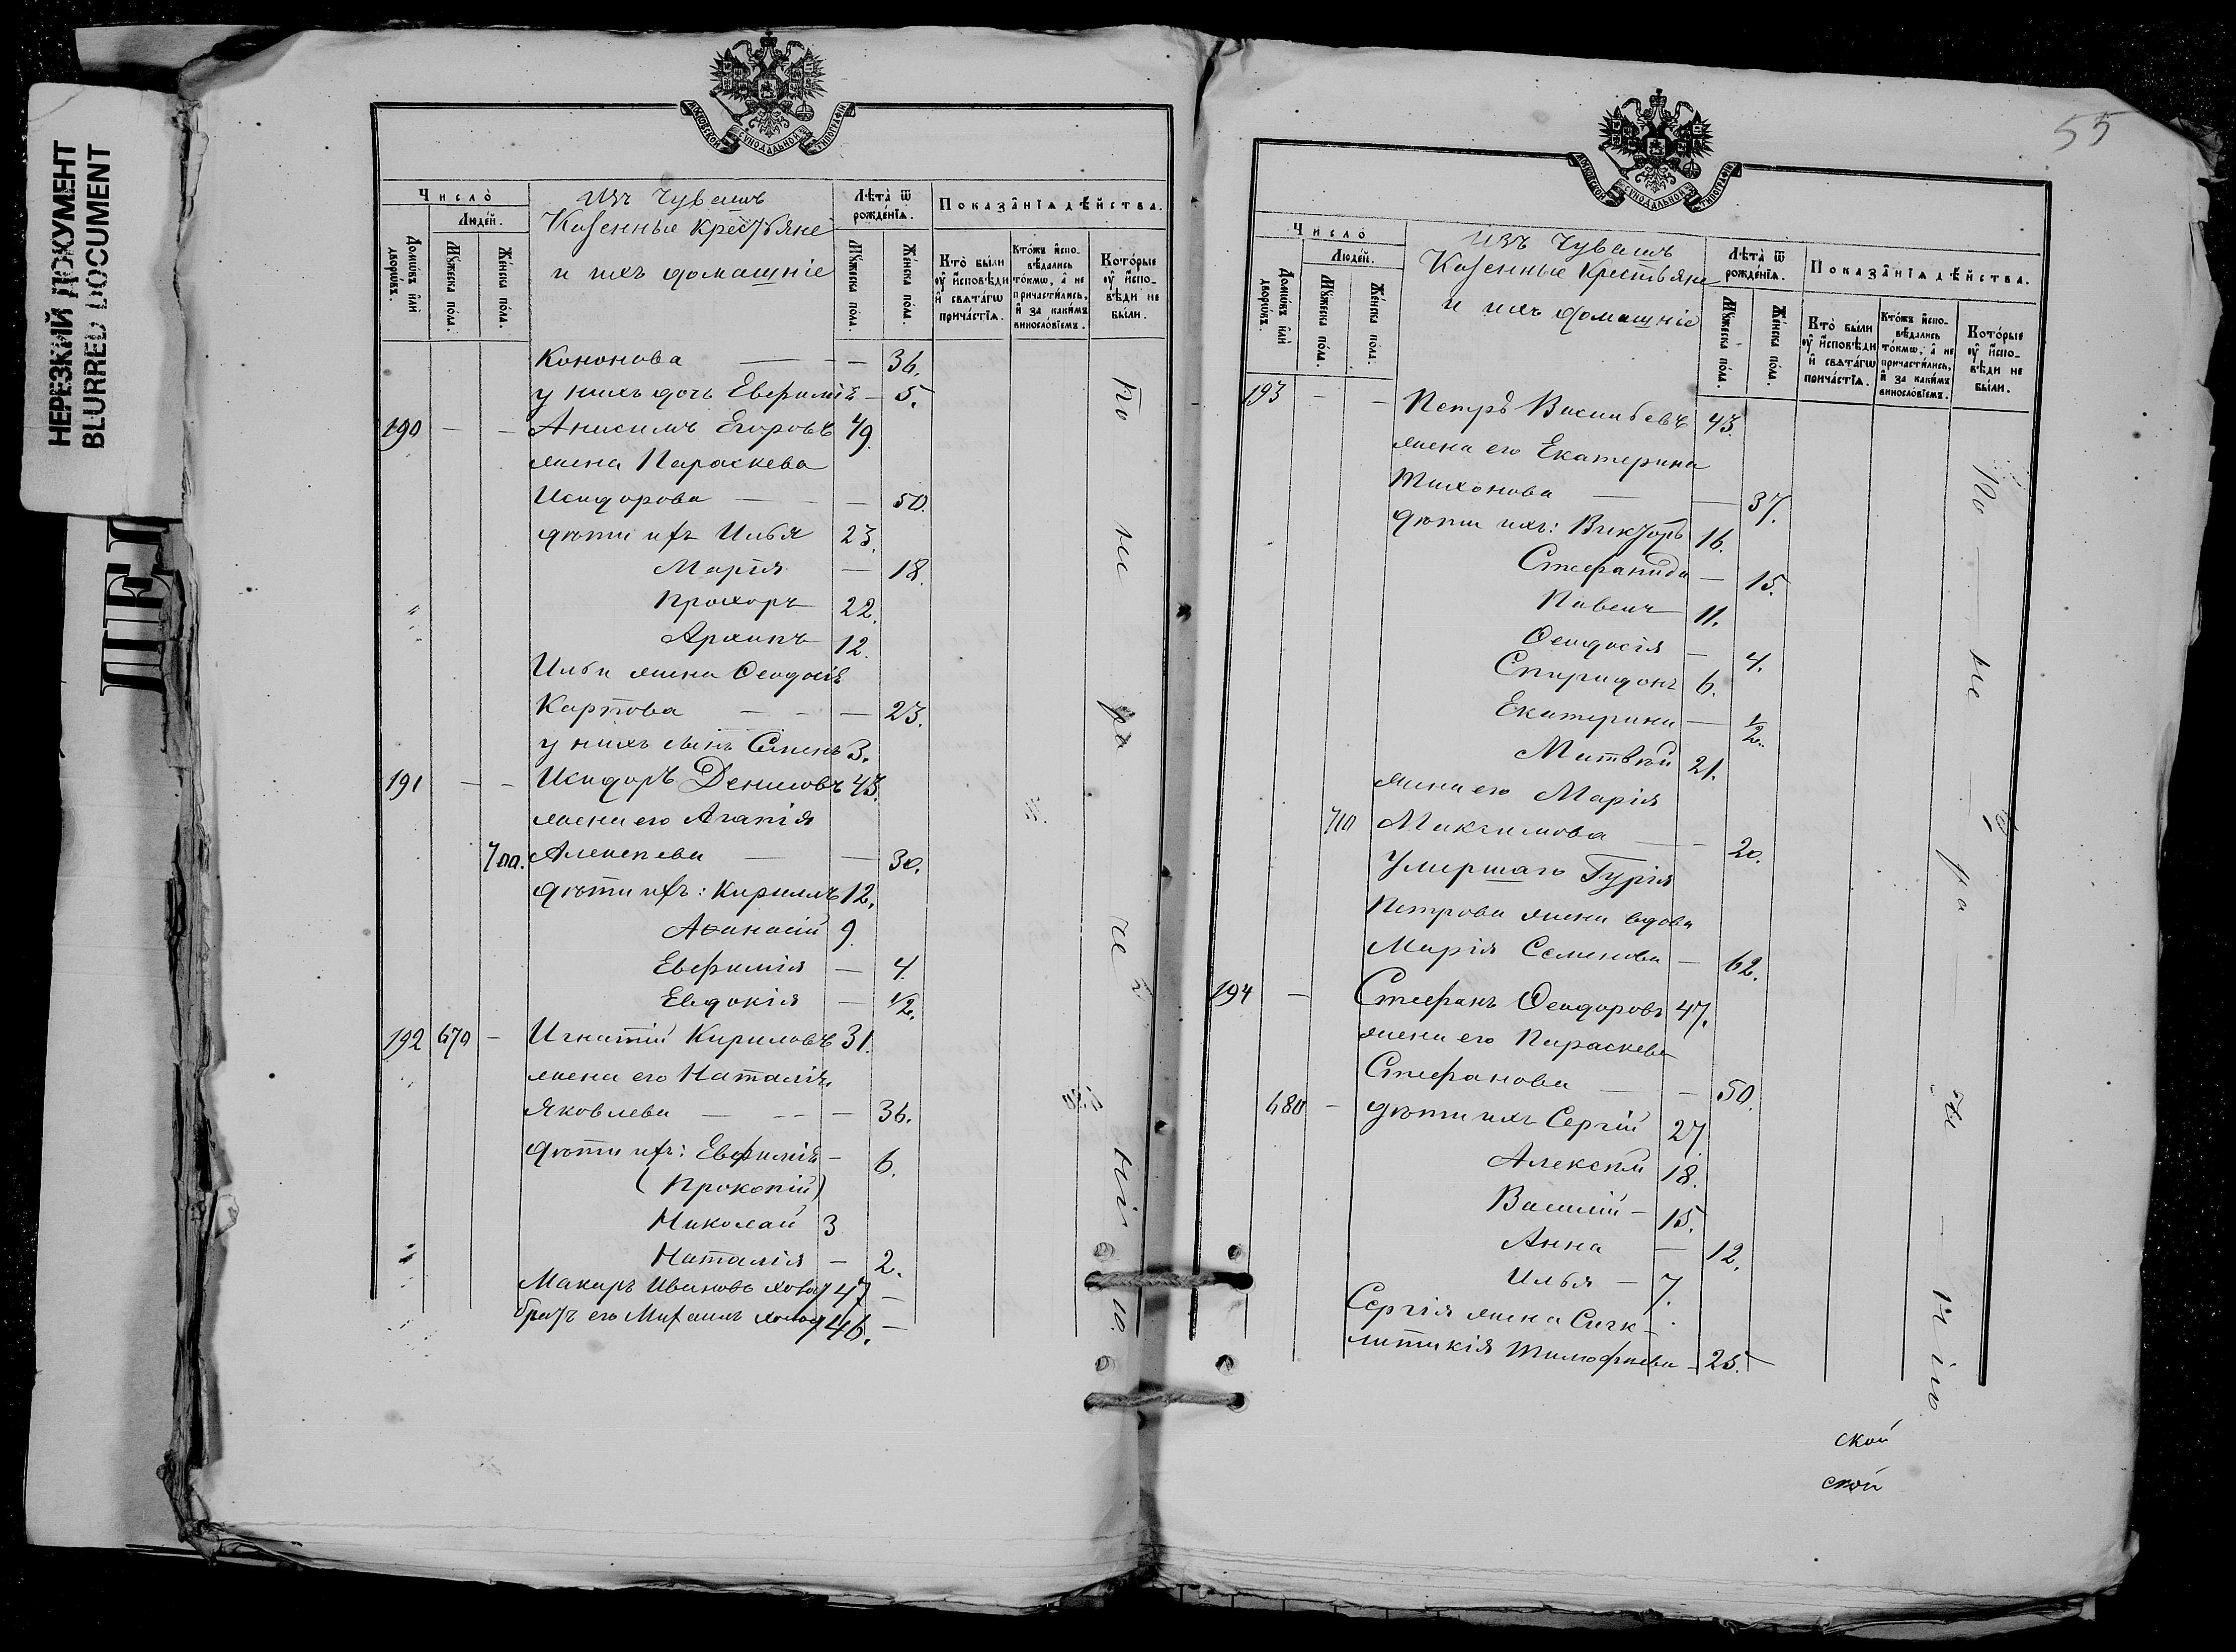 НЕРЕЗКИЙ ДОКУМЕНТ
BLURRED DOCUMENT
МОСКОВСКОЙ СѴНОДАЛЬНОЙ ТИПОГРАФІИ
Число̀
Людей.
Домѡвъ и҆лѝ дворѡвъ.
Мꙋжеска по́ла.
Же́нска по́ла.
Изъ Чувашъ
Казенные крестьяне
и ихъ домашніе
Лѣта̀ ѿ рожде́нїѧ.
Мꙋжеска по́ла.
Же́нска по́ла.
Показа̑нїѧ дѣ́йства.
Кто̀ бы́ли ᲂу҆ и҆сповѣди и҆ свѧта́гѡ прича́стїѧ.
Кто́жъ и҆спо-вѣдались то́кмѡ, а҆ не причасти́лись, и҆ за каки́мъ винослόвїемъ.
Кото́рые ᲂу҆ и҆спо-вѣди не бы́ли.
Кононова — — 36.
у нихъ дочь Евфимія — 5.
190 — — Анисимъ Егоровъ 49.
жена Параскева
Исидорова — — 50.
дѣти ихъ Илья 23.
Марія — 18.
Прохоръ 22.
Архипъ 12.
Ильи жена Ѳеодосія
Карпова — — — 23.
у нихъ сынъ Семенъ 3.
191 — — Исидоръ Денисовъ 43.
жена его Агапія
700. Алексѣева — — 30.
дѣти ихъ: Кирилъ 12.
Аѳанасій 9.
Евфимія — 4.
Евдокія — 1/2.
192 679 — Игнатій Кириловъ 31.
жена его Наталія
Яковлева — — — 36.
дѣти ихъ: Евфимія — 6.
(Прокопій)
Николай 3
Наталія — 2.
Макаръ Ивановъ 47 —
братъ его Михаилъ 46. —
По не ра че нію.
55
МОСКОВСКОЙ СѴНОДАЛЬНОЙ ТИПОГРАФІИ
Число̀
Людей.
Домѡвъ и҆лѝ дворѡвъ.
Мꙋжеска по́ла.
Же́нска по́ла.
Изъ Чувашъ
Казенные Крестьяне
и ихъ домашніе
Лѣта̀ ѿ рожде́нїѧ.
Мꙋжеска по́ла.
Же́нска по́ла.
Показа̑нїѧ дѣ́йства.
Кто̀ бы́ли ᲂу҆ и҆сповѣди и҆ свѧта́гѡ прича́стїѧ.
Кто́жъ и҆спо-вѣдались то́кмѡ, а҆ не причасти́лись, и҆ за каки́мъ винослόвїемъ.
Кото́рые ᲂу҆ и҆спо-вѣди не бы́ли.
193 — — Петръ Васильевъ 43.
жена его Екатерина
Тихонова — — 37.
дѣти ихъ: Викторъ 16.
Стефанида — 15.
Павелъ 11.
Ѳеодосія — 4.
Спиридонъ 6.
Екатерина — 1/2.
Матвѣй 21.
жена его Марія
710 Максимова — 20.
Умершаго Гурія
Петрова жена вдова
Марія Семенова — 62.
194 — Стефанъ Ѳеодоровъ 47.
жена его Параскева
Стефанова — — 50.
680 — дѣти ихъ Сергій 27
Алексѣй 18.
Василій — 15.
Анна — 12.
Илья — 7.
Сергія жена Синк-
литикія Тимофѣева — 25.
По — не — ра — че — нію
ской
ской